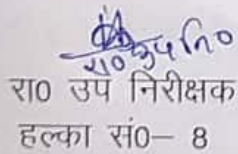 रा० उप नि०
रा० उप निरीक्षक
हल्का सं०– 8